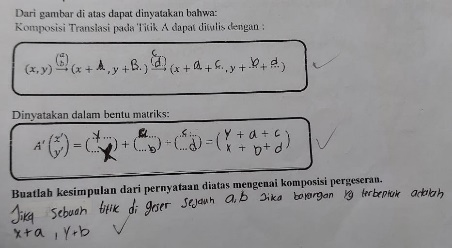 Dari gambar di atas dapat dinyatakan bahwa:
Komposisi Translasi pada Titik A dapat ditulis dengan :
(x, y) →(a b) (x + A, y + B.) →(c d) (x + a + c., y + b + d.)
Dinyatakan dalam bentu matriks:
A' (x' y') = (y... ...x) + (a... ...b) + (c... ...d) = (y + a + c x + b + d)
Buatlah kesimpulan dari pernyataan diatas mengenai komposisi pergeseran.
Jika sebuah titik di geser sejauh a,b Jika bayangan yg terbentuk adalah
x+a , y+b